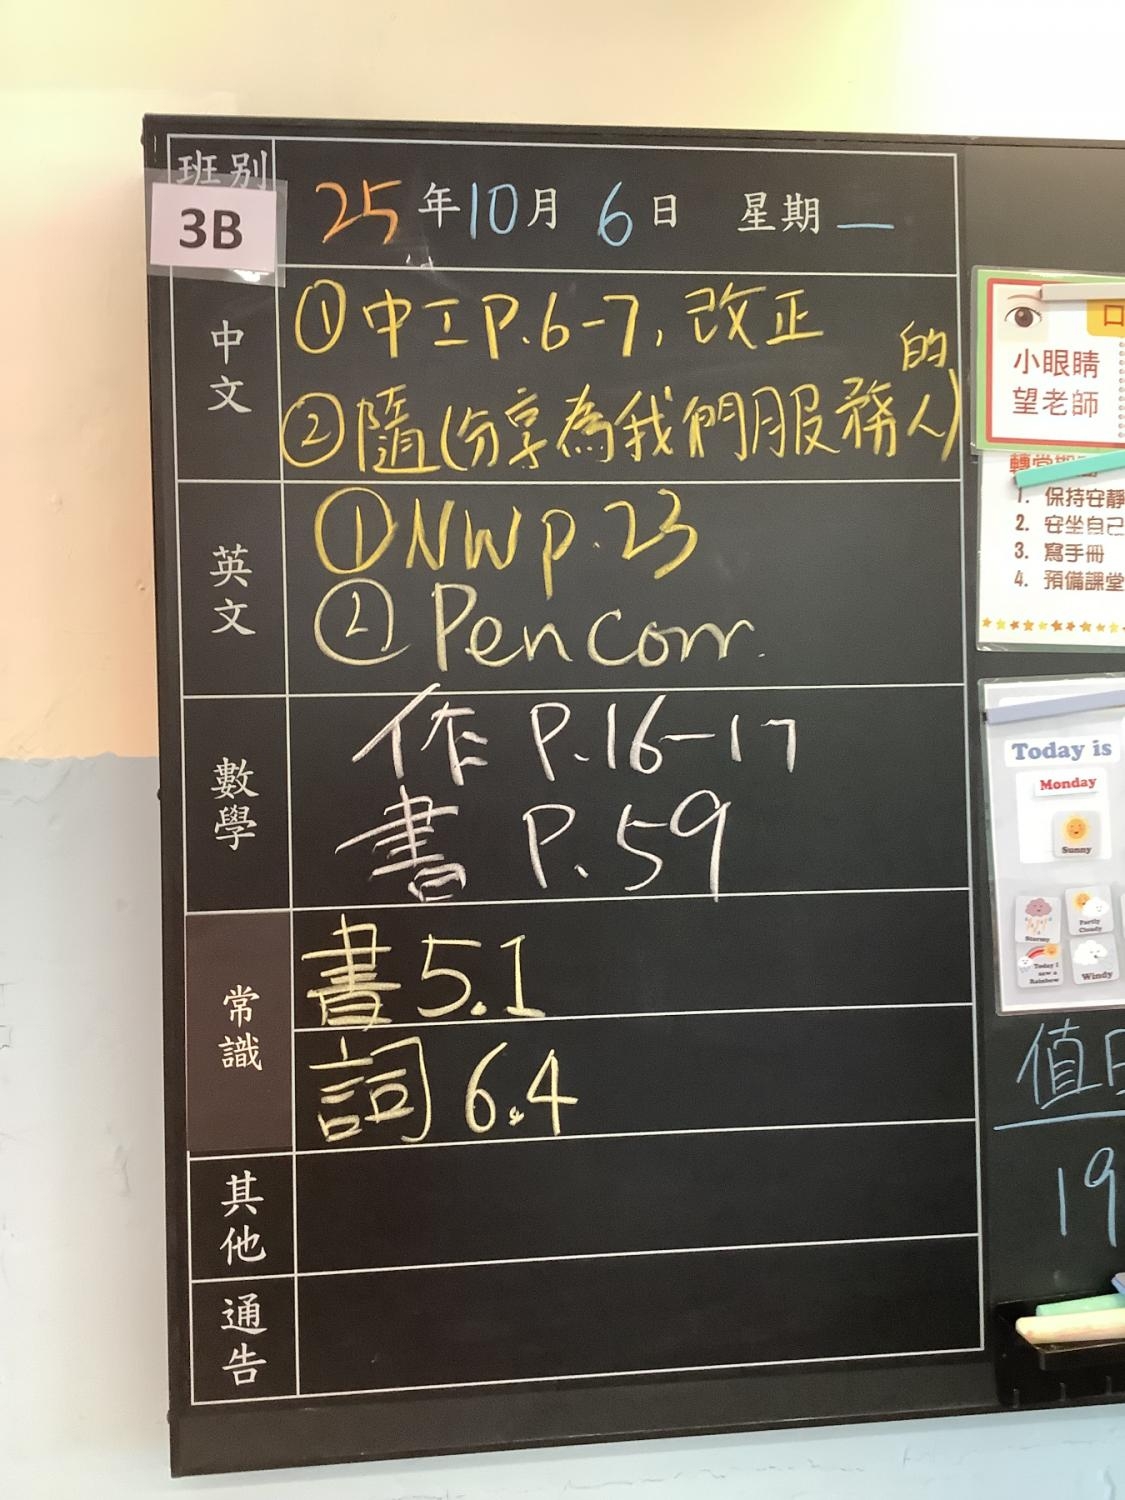 班別
3B
25年10月6日 星期一
中文
①中工P.6-7, 改正
②隨(分享為我們服務的人)
英文
①NW p.23
②Pen Corr.
數學
作 P.16-17
書 P.59
常識
書 5.1
詞 6.4
其他
通告
口
小眼睛
望老師
1. 保持安靜
2. 安坐自己
3. 寫手冊
4. 預備課堂
Today is
Monday
Sunny
Stormy
Partly
Cloudy
Today I
saw a
Rainbow
Windy
值日
19